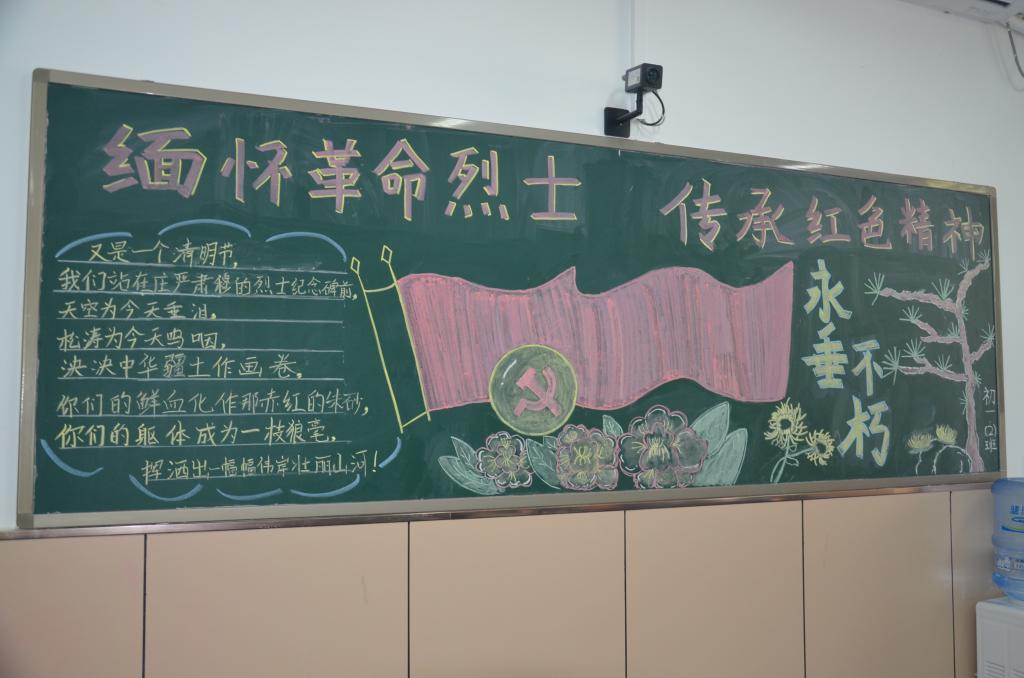 缅怀革命烈士 传承红色精神
又是一个清明节,
我们站在庄严肃穆的烈士纪念碑前,
天空为今天垂泪,
松涛为今天呜咽,
泱泱中华疆土作画卷,
你们的鲜血化作那赤红的朱砂,
你们的躯体成为一枝狼毫,
挥洒出一幅幅伟岸壮丽山河!
永垂不朽
初一(2)班